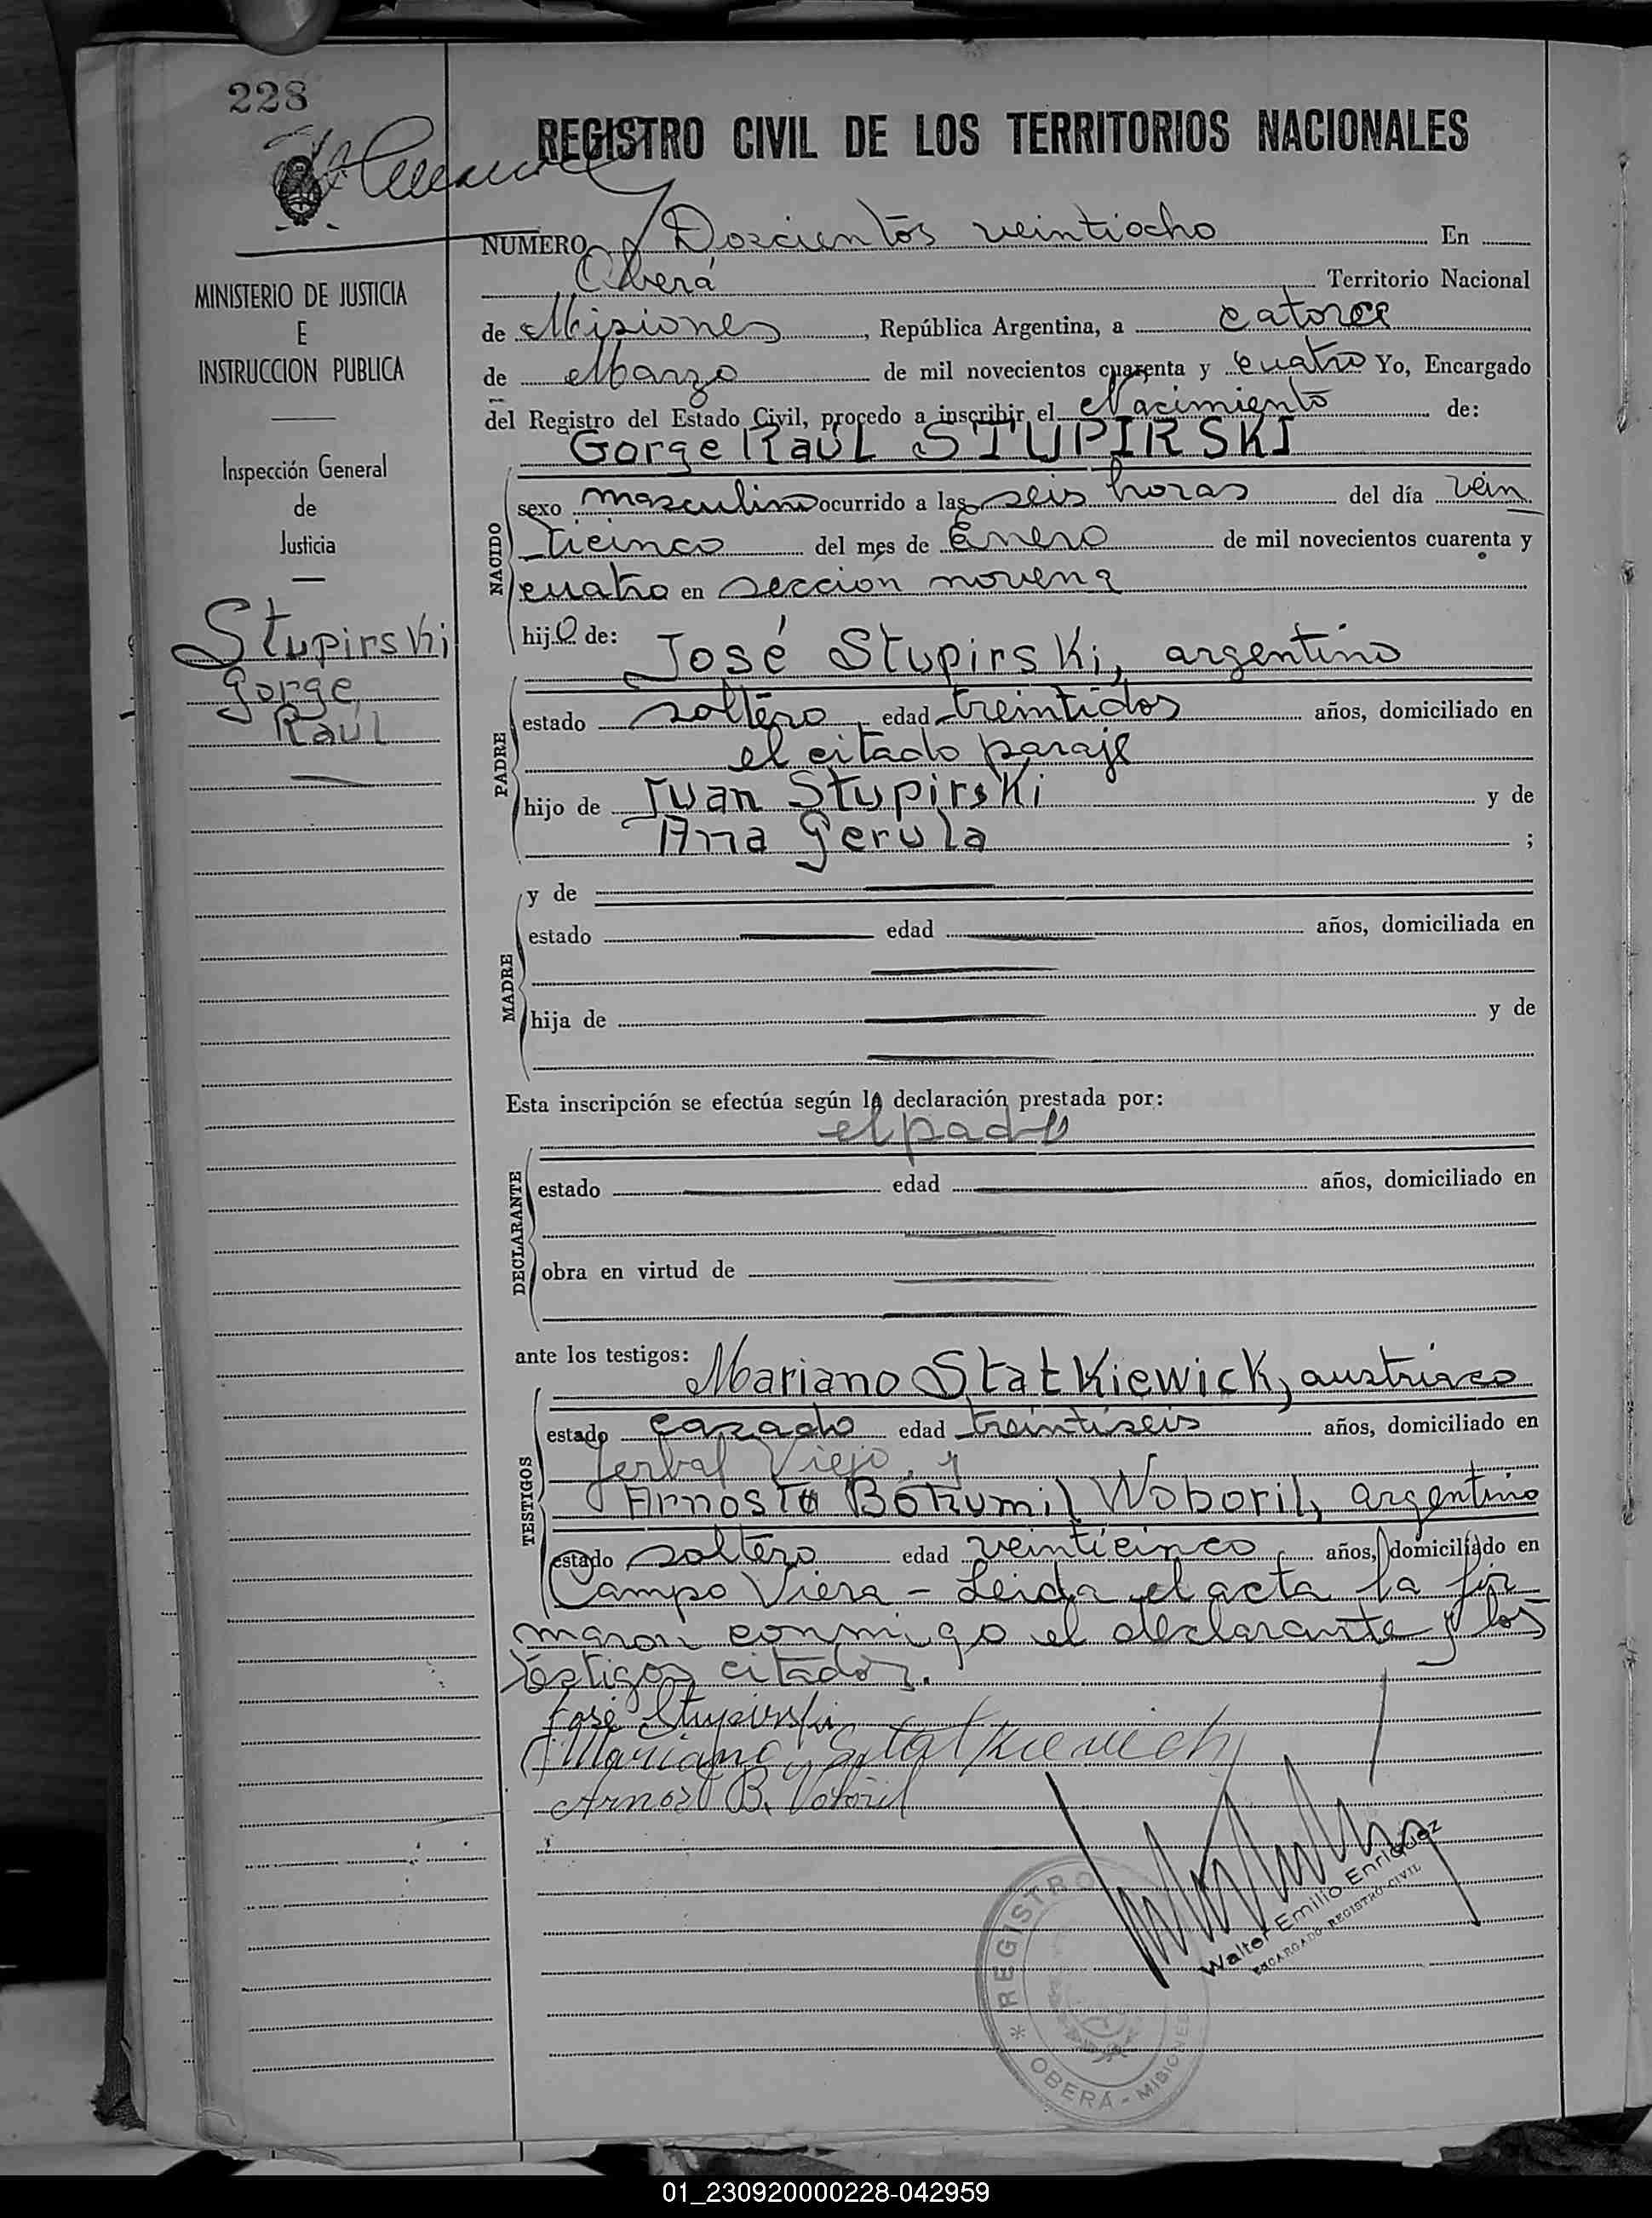 228
REGISTRO CIVIL DE LOS TERRITORIOS NACIONALES
MINISTERIO DE JUSTICIA
E
INSTRUCCION PUBLICA
Inspección General
de
Justicia
Stupirski
Gorge
Raúl
NUMERO Doscientos veintiocho En
Oberá Territorio Nacional
de Misiones, República Argentina, a catorce
de Marzo de mil novecientos cuarenta y cuatro Yo, Encargado
del Registro del Estado Civil, procedo a inscribir el Nacimiento de:
Gorge Raúl STUPIRSKI
NACIDO
sexo masculino ocurrido a las seis horas del día vein
ticinco del mes de Enero de mil novecientos cuarenta y
cuatro en seccion novena
hijo de:
José Stupirski, argentino
PADRE
estado soltero edad treintidos años, domiciliado en
el citado paraje
hijo de Juan Stupirski y de
Ana Gerula ;
MADRE
y de
estado edad años, domiciliada en
hija de y de
Esta inscripción se efectúa según la declaración prestada por:
el padre
DECLARANTE
estado edad años, domiciliado en
obra en virtud de
ante los testigos:
Mariano Statkiewick, austriaco
TESTIGOS
estado casado edad treintiseis años, domiciliado en
Yerbal Viejo, y
Arnosto Bohumil Woboril, argentino
estado soltero edad veinticinco años, domiciliado en
Campo Viera - Leida el acta la fir
maron conmigo el declarante y los
testigos citados.
José Stupirski
Mariano Statkievich
Arnost B. Voboril
Walter Emilio Enriquez
ENCARGADO REGISTRO CIVIL
* REGISTRO
OBERÁ - MISIONES
01_230920000228-042959